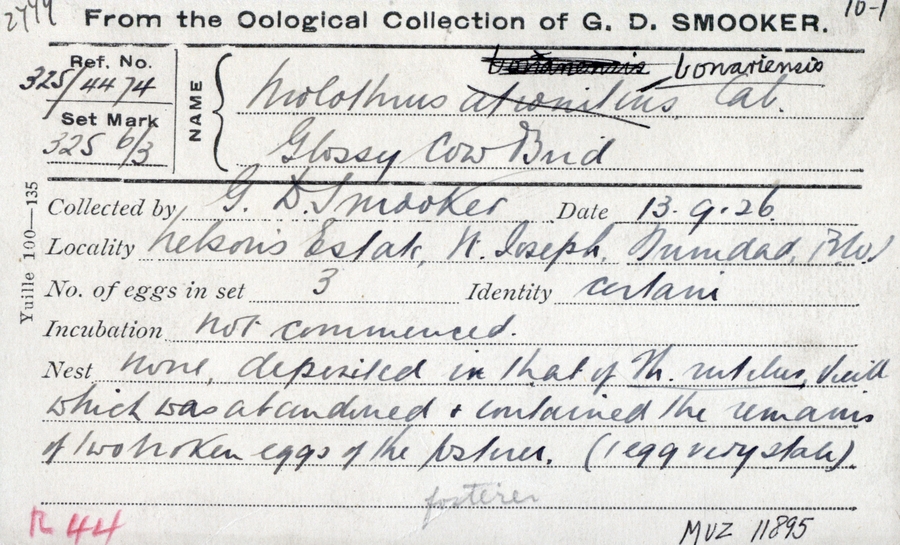 2779 10-1
From the Oological Collection of G. D. SMOOKER.
Ref. No.
325/4474
Set Mark
325 6/3
NAME
bonariensis
Molothrus atronitens, Cab.
Glossy Cow Brid
Collected by G. D. Smooker Date 13.9.26.
Locality Nelson's Estate, St. Joseph, Trinidad, B.W.I
No. of eggs in set 3 Identity certain
Incubation not commenced.
Nest none, deposited in that of Th. rutilus, Vieill
which was abandoned & contained the remains
of two broken eggs of the fosterer. (1 egg very stale).
fosterer
R 44
MVZ 11895
Yuille 100—135